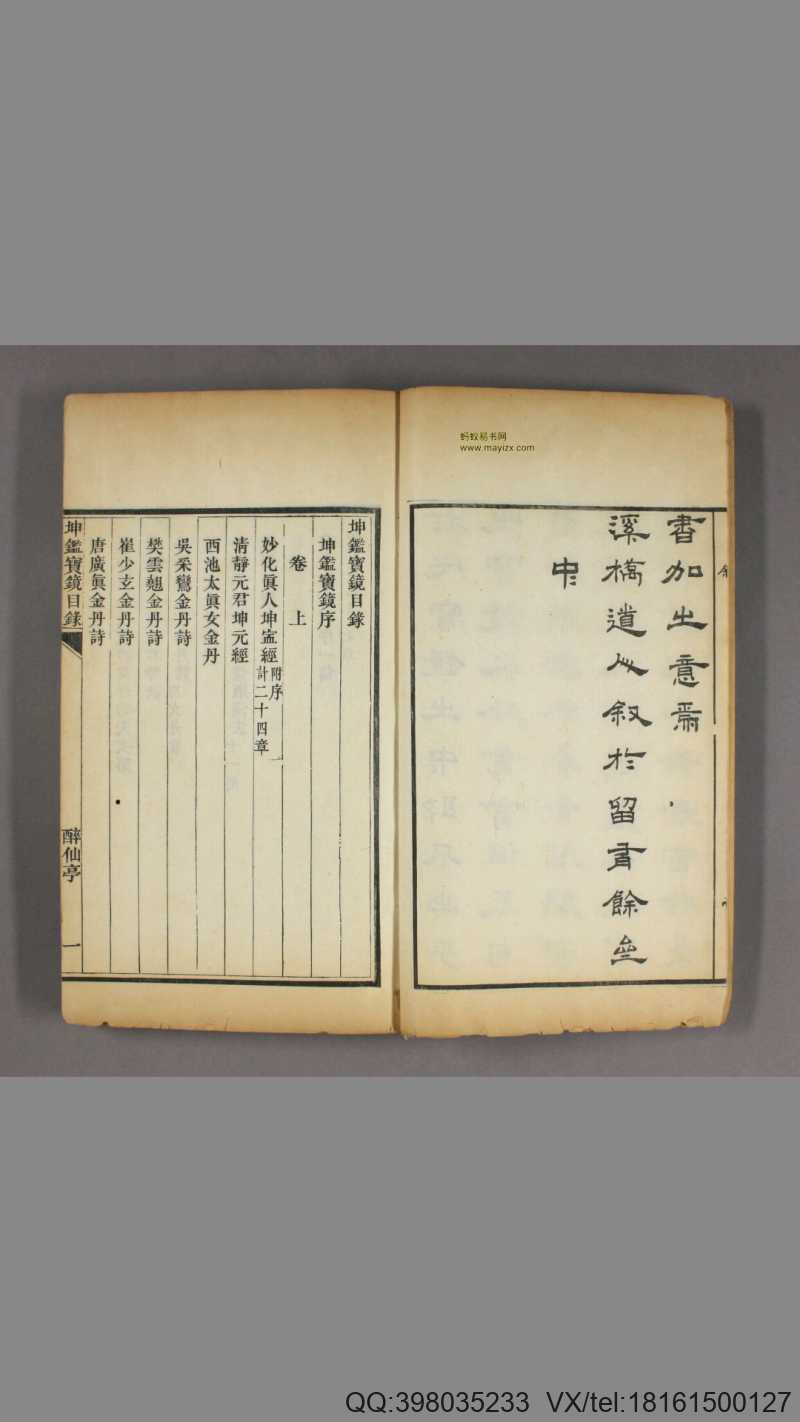 蚂蚁易书网
www.mayizx.com
書加之意焉
溪橋道人叙於留青餘
中
坤鑑寶鏡目錄
坤鑑寶鏡序
卷上
妙化眞人坤寍經附序計二十四章
清靜元君坤元經
西池太眞女金丹
吳采鸞金丹詩
樊雲翹金丹詩
崔少玄金丹詩
唐廣眞金丹詩
坤鑑寶鏡目錄
醉仙亭
一
QQ:398035233 VX/tel:18161500127